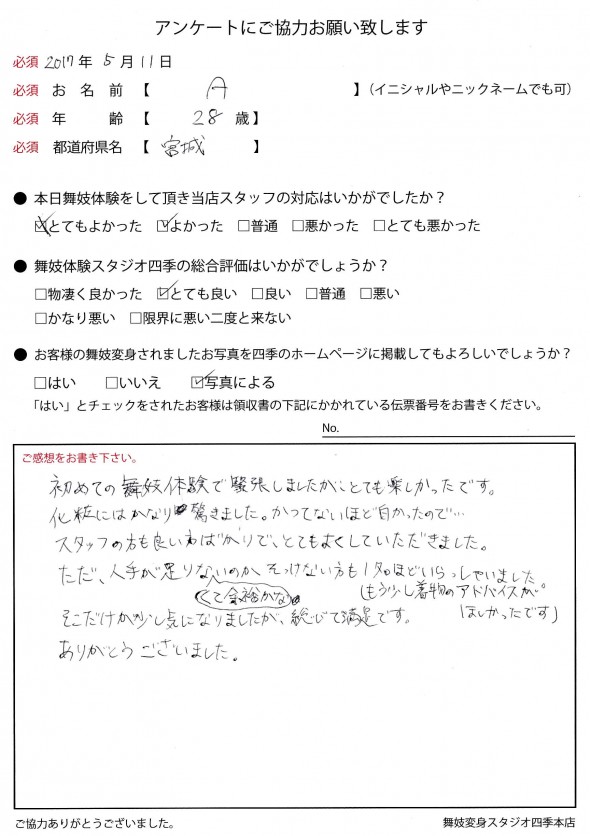 アンケートにご協力お願い致します
必須 2017年 5月 11日
必須 お 名 前 【 A 】（イニシャルやニックネームでも可）
必須 年 齢 【 28 歳】
必須 都道府県名 【 宮城 】
● 本日舞妓体験をして頂き当店スタッフの対応はいかがでしたか？
☑とてもよかった ☑よかった □普通 □悪かった □とても悪かった
● 舞妓体験スタジオ四季の総合評価はいかがでしょうか？
□物凄く良かった ☑とても良い □良い □普通 □悪い
□かなり悪い □限界に悪い二度と来ない
● お客様の舞妓変身されましたお写真を四季のホームページに掲載してもよろしいでしょうか？
□はい □いいえ ☑写真による
「はい」とチェックをされたお客様は領収書の下記にかかれている伝票番号をお書きください。
No.
ご感想をお書き下さい。
初めての舞妓体験で緊張しましたが、とても楽しかったです。
化粧にはかなり驚きました。かつてないほど白かったので…
スタッフの方も良いひとばかりで、とてもよくしていただきました。
ただ、人手が足りないのか、そっけない方も1名ほどいらっしゃいました。
くて余裕がない
(もう少し着物のアドバイスが
ほしかったです)
そこだけが少し気になりましたが、総じて満足です。
ありがとうございました。
ご協力ありがとうございました。
舞妓変身スタジオ四季本店